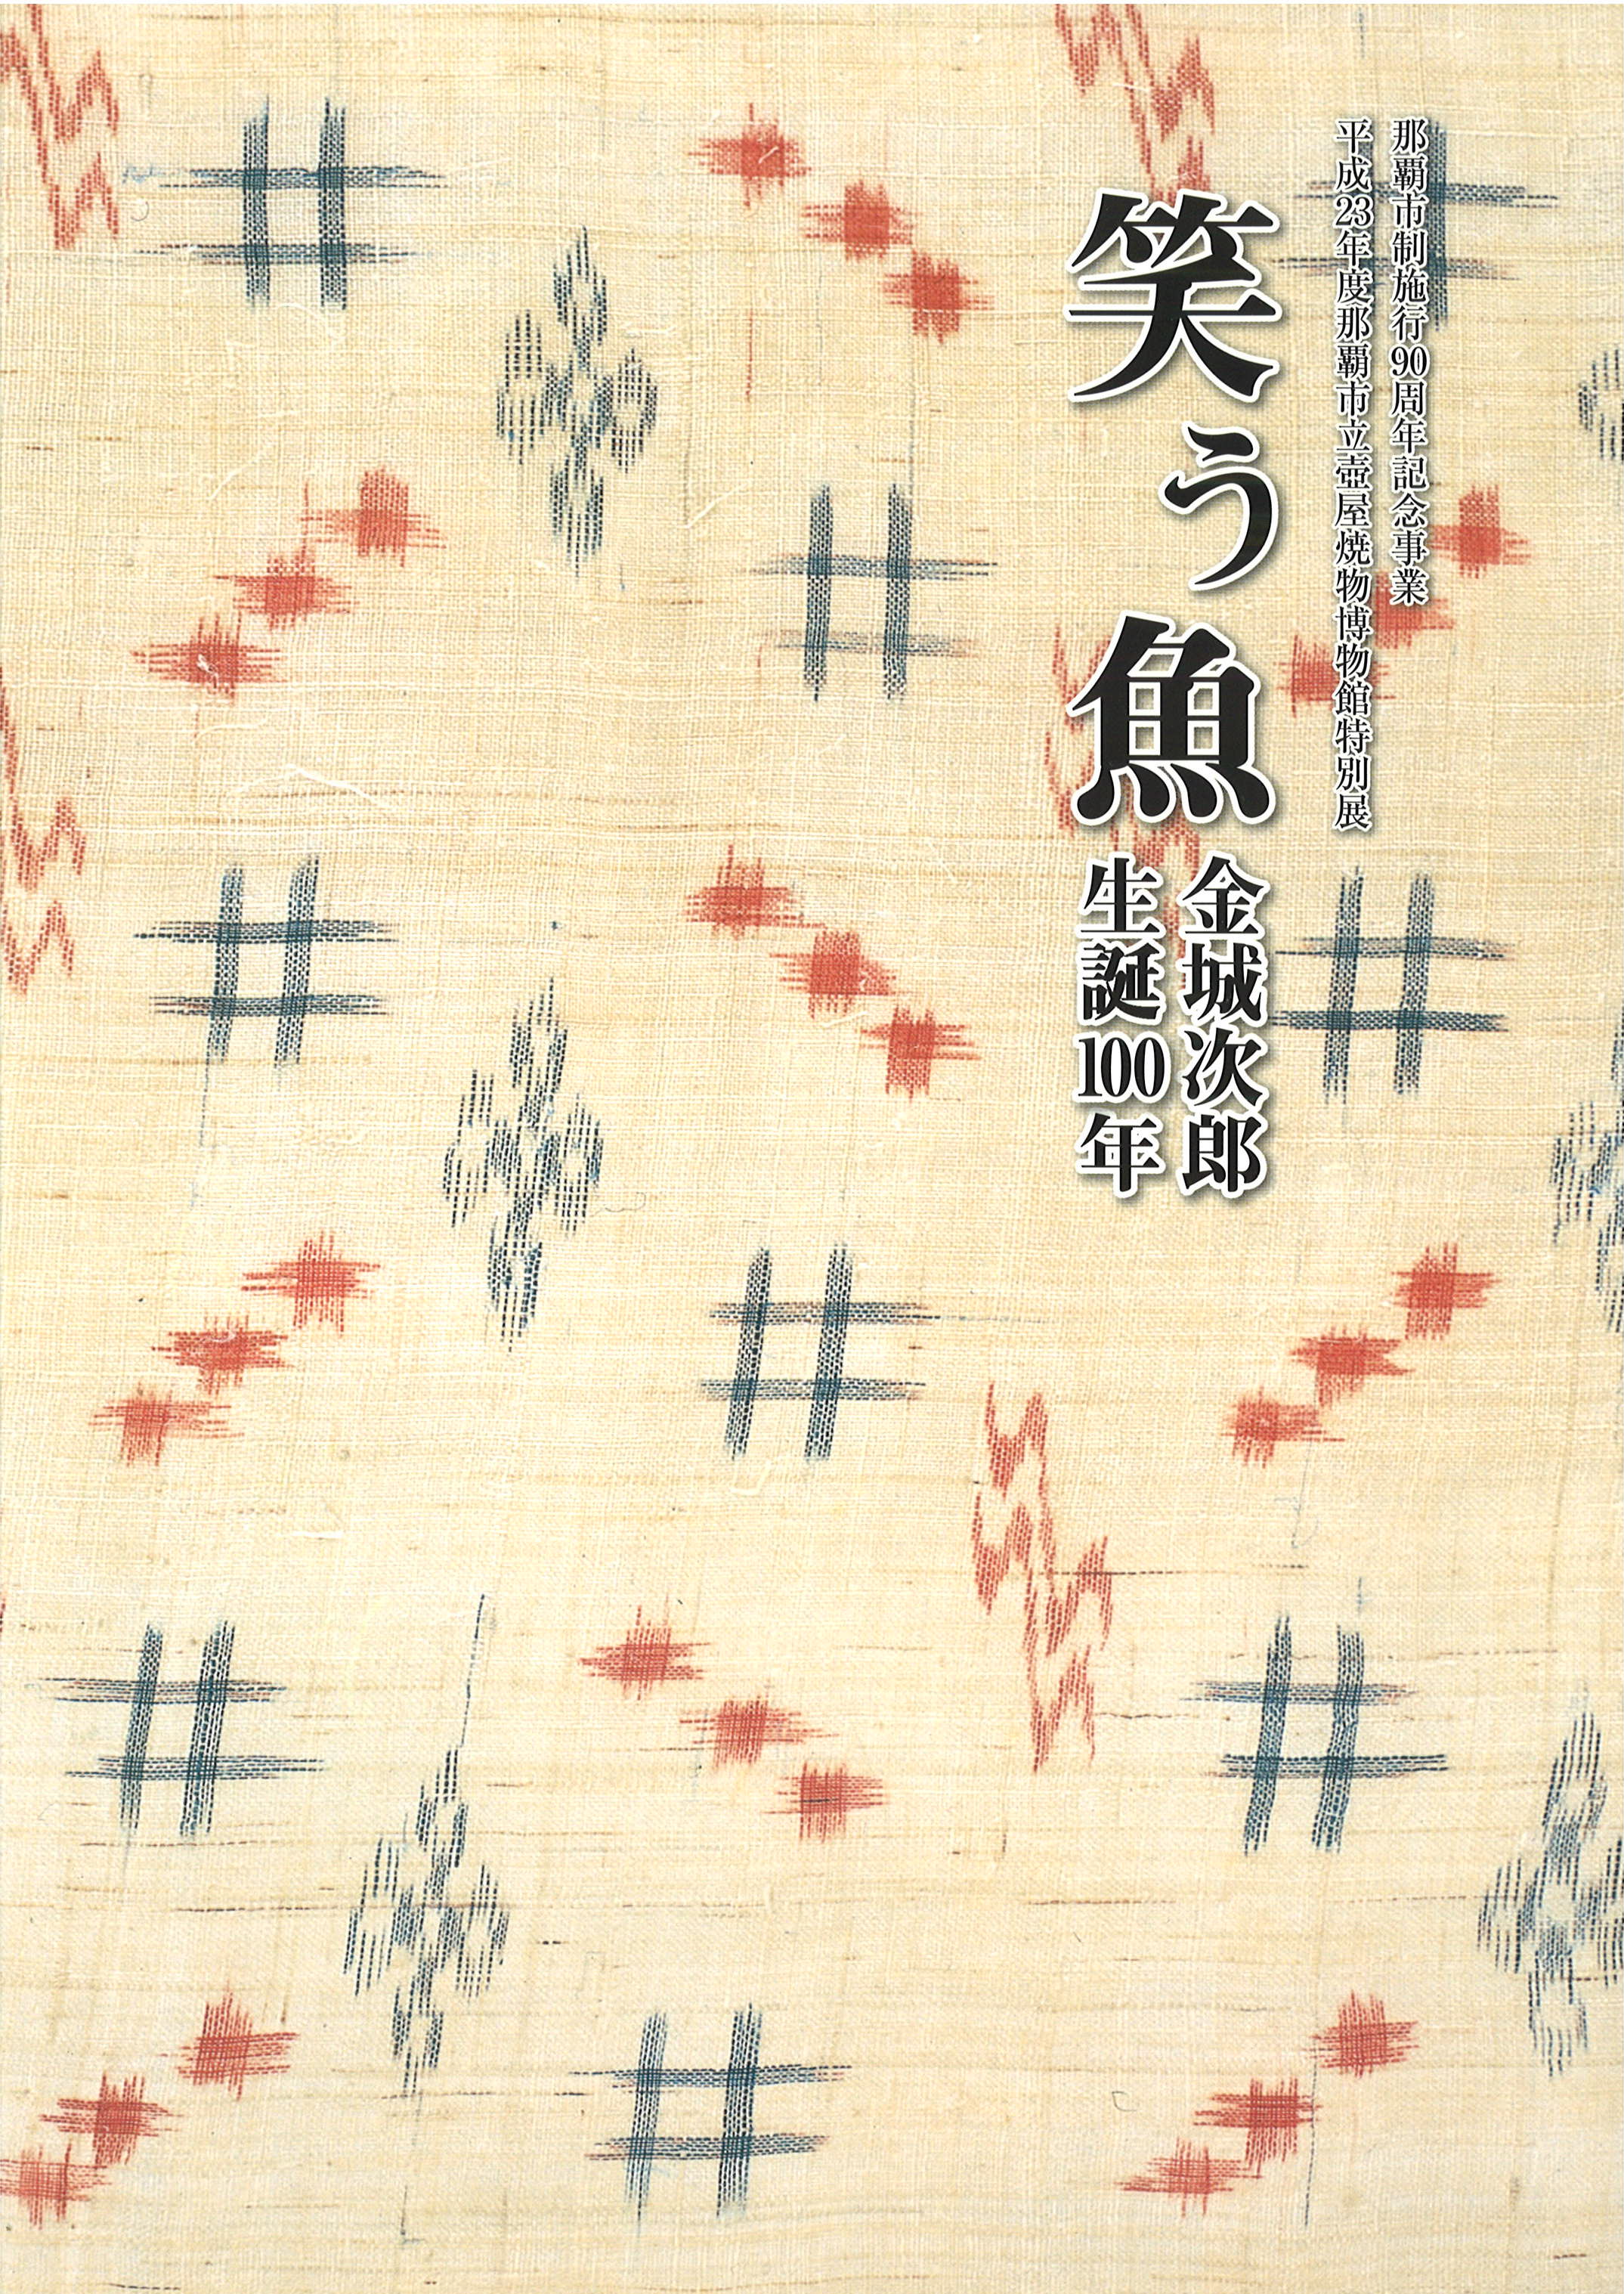 那覇市制施行90周年記念事業
平成23年度那覇市立壺屋焼物博物館特別展
笑う魚
金城次郎
生誕100年